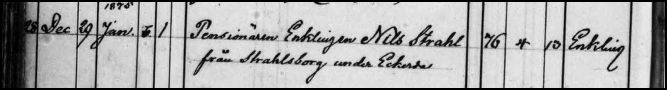 1875
28 Dec 29 Jan. 1 Pensionären Enklingen Nils Strahl 76 4 13 Enkling
från Strahlsborg under Eckerda